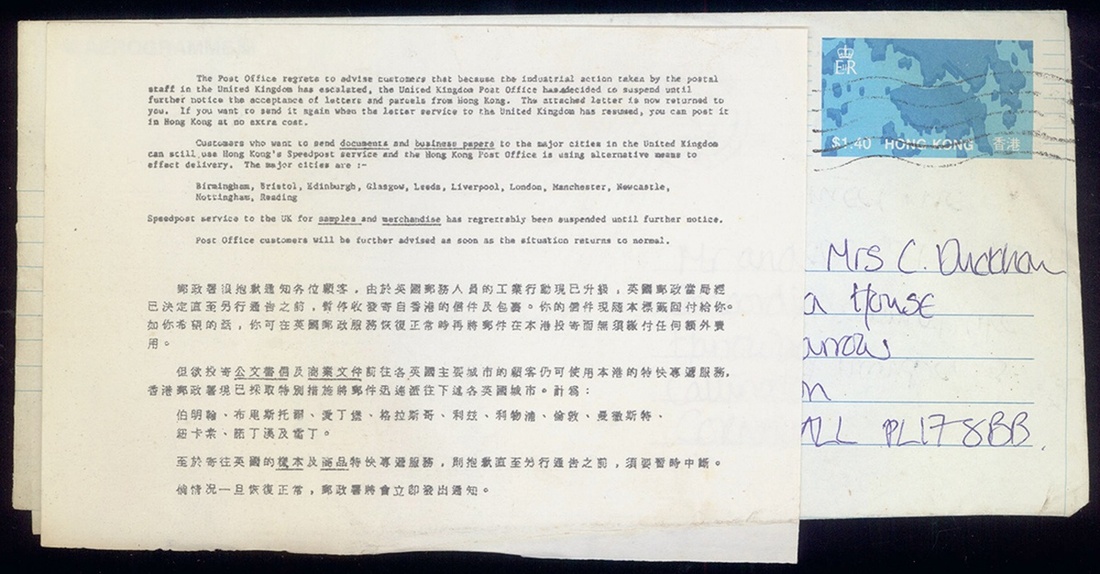 The Post Office regrets to advise customers that because the industrial action taken by the postal
staff in the United Kingdom has escalated, the United Kingdom Post Office has decided to suspend until
further notice the acceptance of letters and parcels from Hong Kong. The attached letter is now returned to
you. If you want to send it again when the letter service to the United Kingdom has resumed, you can post it
in Hong Kong at no extra cost.
Customers who want to send documents and business papers to the major cities in the United Kingdom
can still use Hong Kong's Speedpost service and the Hong Kong Post Office is using alternative means to
effect delivery. The major cities are :-
Birmingham, Bristol, Edinburgh, Glasgow, Leeds, Liverpool, London, Manchester, Newcastle,
Nottingham, Reading
Speedpost service to the UK for samples and merchandise has regrettably been suspended until further notice.
Post Office customers will be further advised as soon as the situation returns to normal.
郵政署很抱歉通知各位顧客,由於英國郵務人員的工業行動現已升級,英國郵政當局經
已決定直至另行通告之前,暫停收發寄自香港的信件及包裹。你的信件現隨本標籤回付給你。
如你希望的話,你可在英國郵政服務恢復正常時再將郵件在本港投寄而無須繳付任何額外費
用。
但欲投寄公文書信及商業文件前往各英國主要城市的顧客仍可使用本港的特快專遞服務,
香港郵政署現已採取特別措施將郵件迅速遞往下述各英國城市。計為:
伯明翰、布里斯托爾、愛丁堡、格拉斯哥、利茲、利物浦、倫敦、曼徹斯特、
紐卡素、諾丁漢及雷丁。
至於寄往英國的樣本及商品特快專遞服務,則抱歉直至另行通告之前,須要暫時中斷。
倘情況一旦恢復正常,郵政署將會立即發出通知。
E II R
$1.40 HONG KONG 香港
Mrs C. Duckham
a House
arrow
on
ALL PL17 8BB.